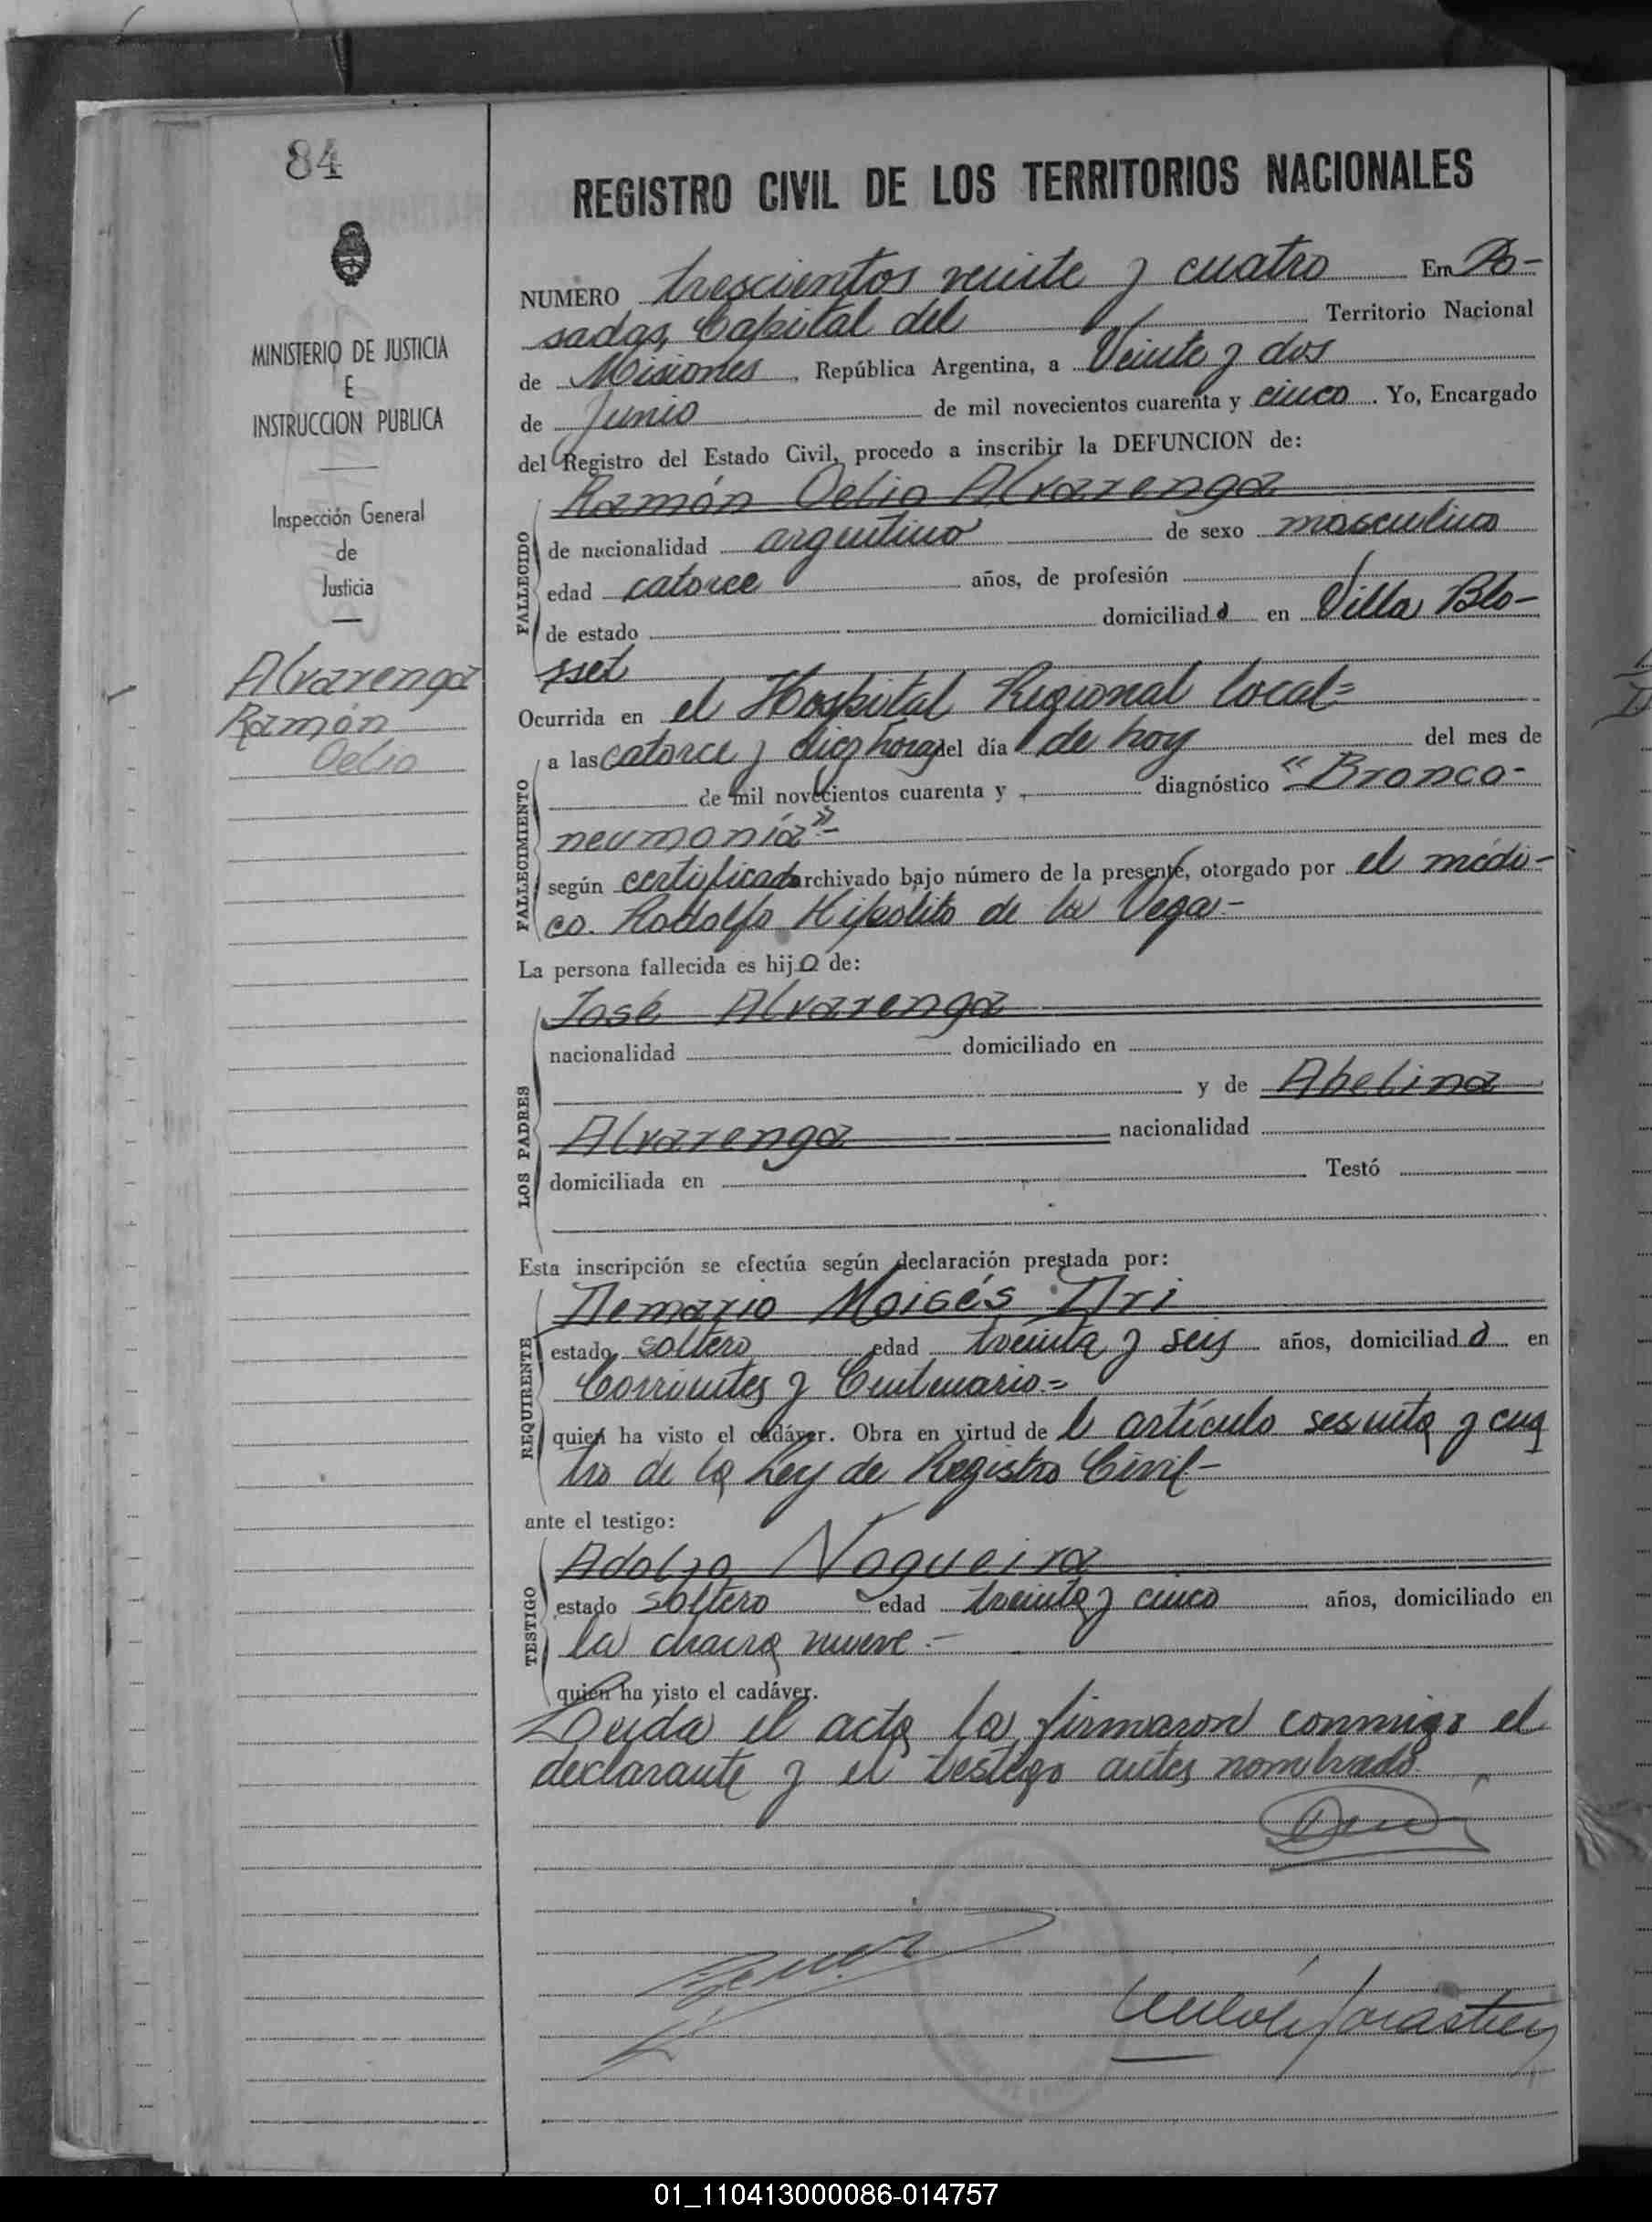 84
MINISTERIO DE JUSTICIA
E
INSTRUCCION PUBLICA
Inspección General
de
Justicia
Alvarenga
Ramón
Oelio
REGISTRO CIVIL DE LOS TERRITORIOS NACIONALES
NUMERO trescientos veinte y cuatro En Po-
sadas, Capital del Territorio Nacional
de Misiones, República Argentina, a Veinte y dos
de Junio de mil novecientos cuarenta y cinco. Yo, Encargado
del Registro del Estado Civil, procedo a inscribir la DEFUNCION de:
FALLECIDO
Ramón Oelio Alvarenga
de nacionalidad argentino de sexo masculino
edad catorce años, de profesión
de estado domiciliado en Villa Blo-
sset
Ocurrida en el Hospital Regional local=
FALLECIMIENTO
a las catorce y diez horas del día de hoy del mes de
de mil novecientos cuarenta y diagnóstico "Bronco-
neumonía"-
según certificado archivado bajo número de la presente, otorgado por el médi-
co. Rodolfo Hipólito de la Vega-
La persona fallecida es hijo de:
LOS PADRES
José Alvarenga
nacionalidad domiciliado en
y de Abelina
Alvarenga nacionalidad
domiciliada en Testó
Esta inscripción se efectúa según declaración prestada por:
REQUIRENTE
Nemario Moisés Dri
estado soltero edad treinta y seis años, domiciliado en
Corrientes y Centenario.=
quien ha visto el cadáver. Obra en virtud de l artículo sesenta y cua
tro de la Ley de Registro Civil-
ante el testigo:
TESTIGO
Adolfo Nogueira
estado soltero edad treinta y cinco años, domiciliado en
la chacra nueve.-
quien ha visto el cadáver.
Leída el acta la firmaron conmigo el
declarante y el testigo antes nombrado.
01_110413000086-014757